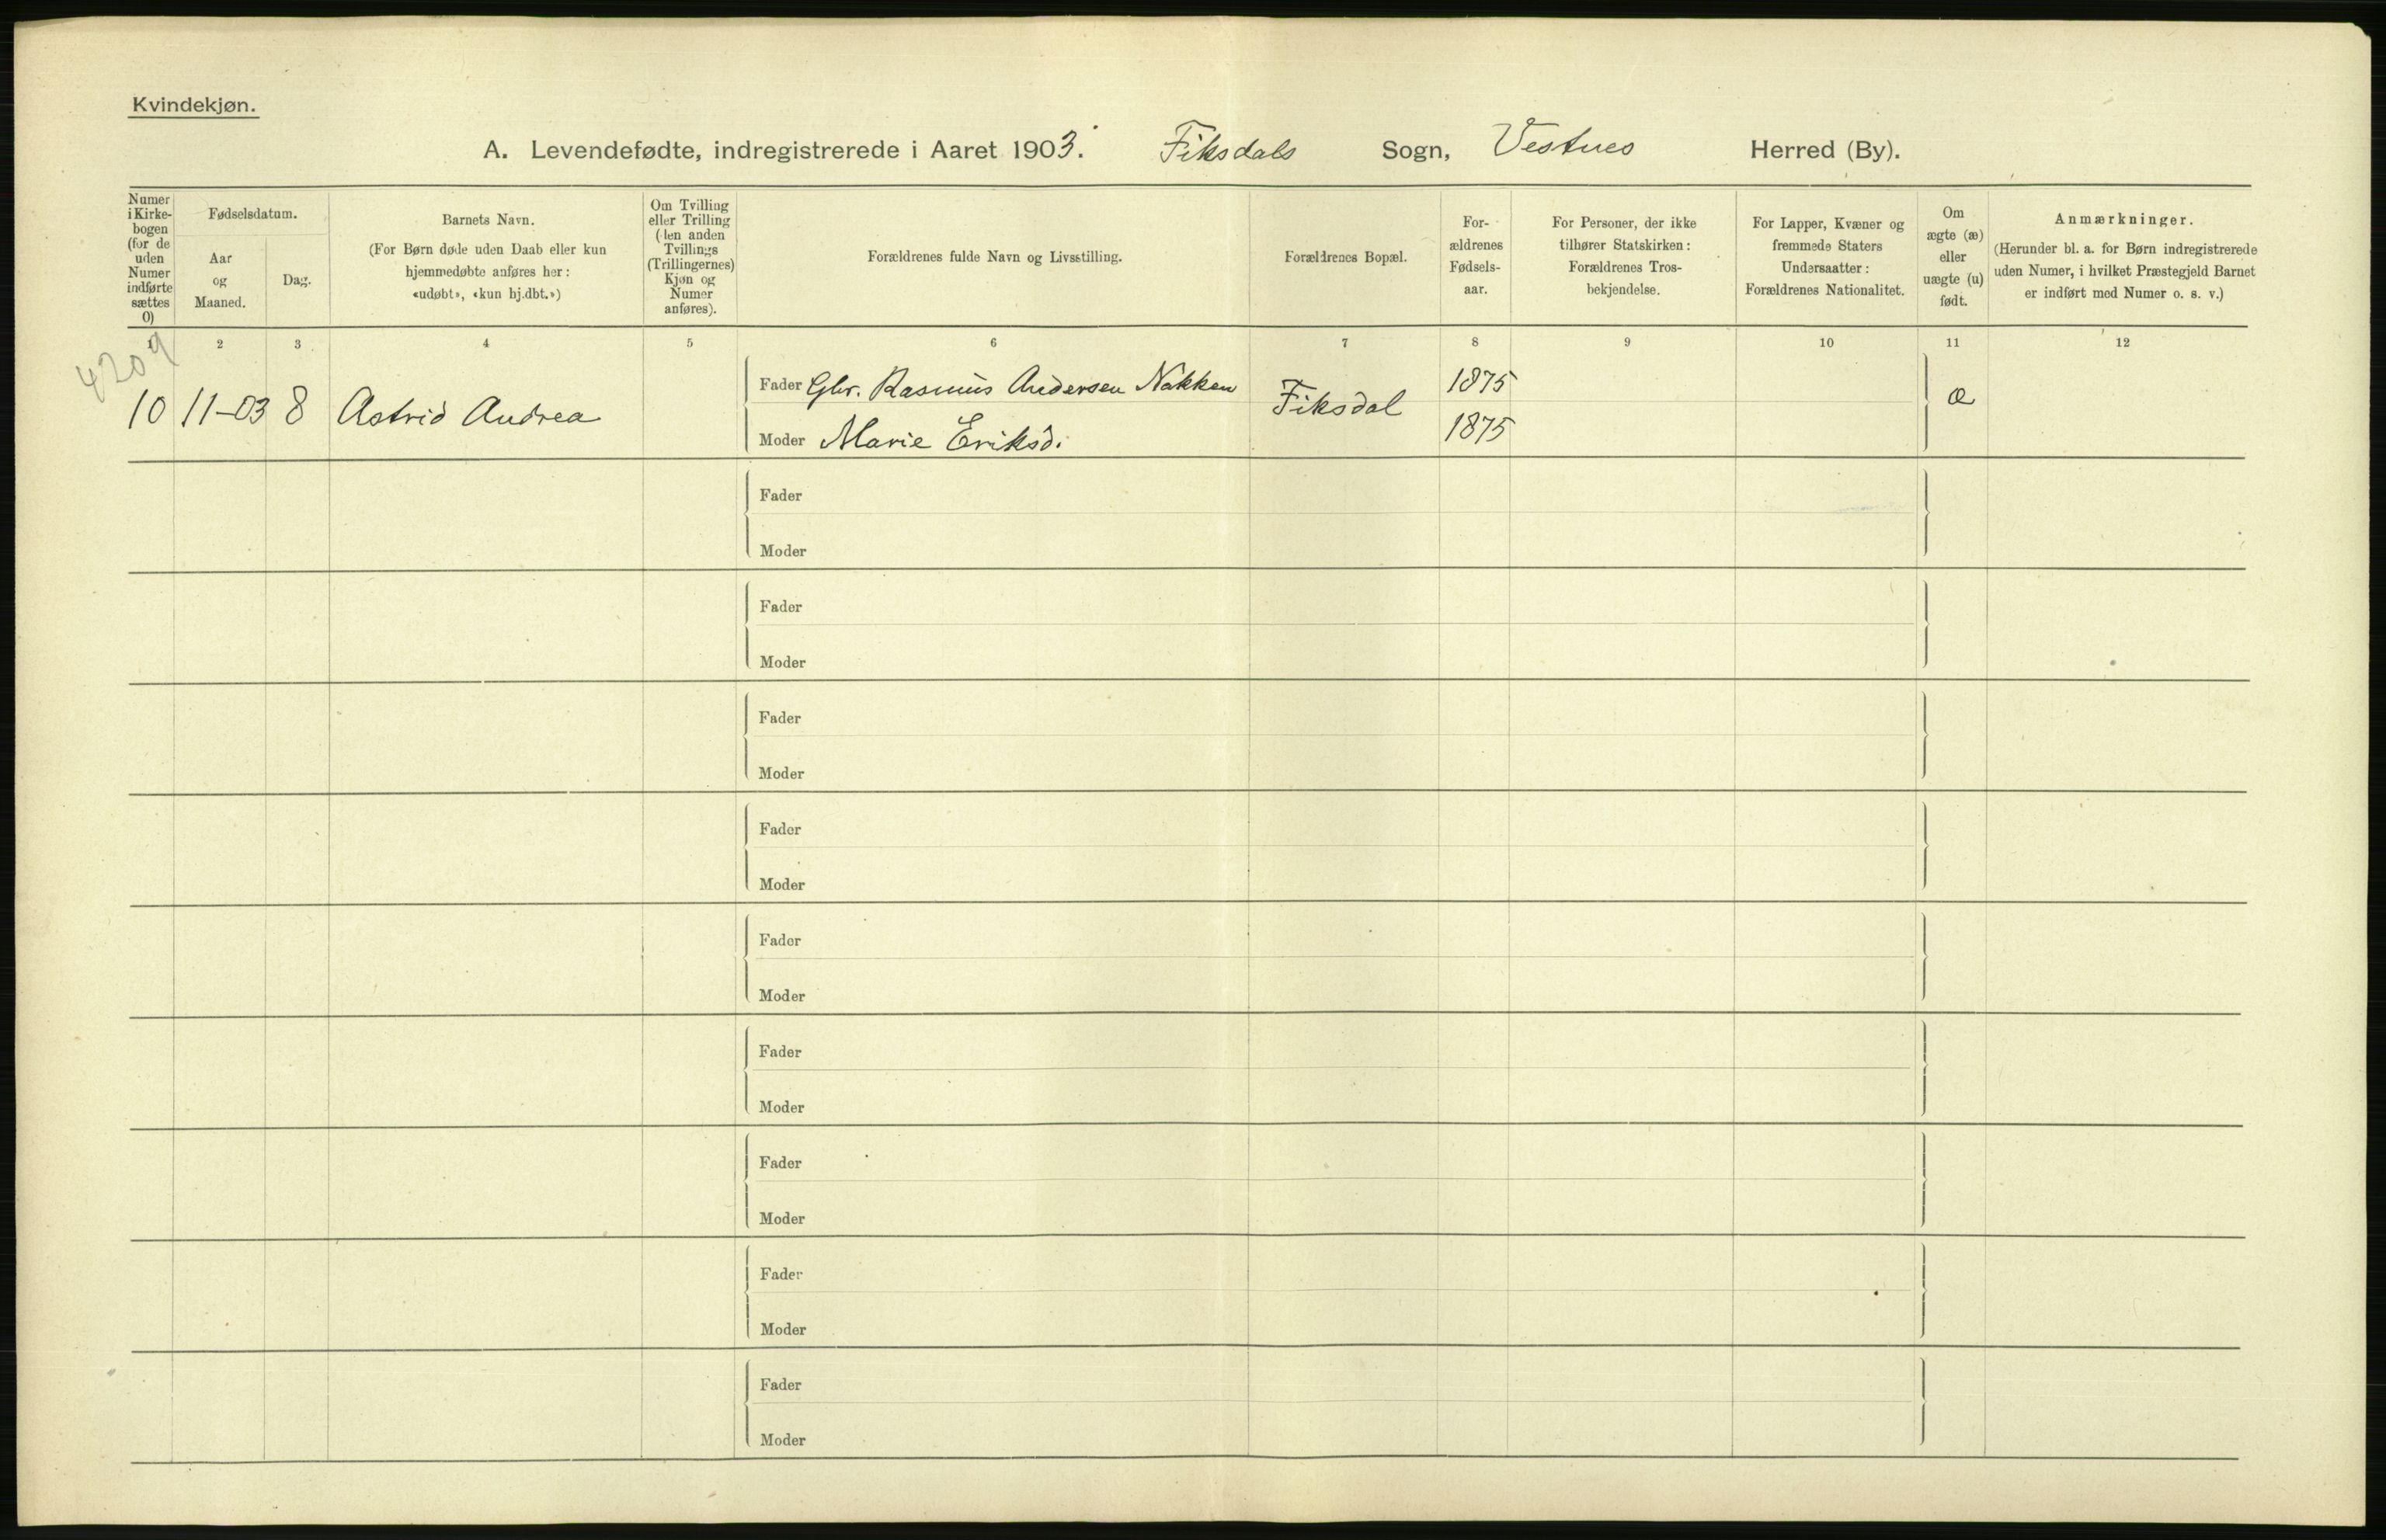 Kvindekjøn.
A. Levendefødte, indregistrerede i Aaret 1903. Fiksdals Sogn, Vestnes Herred (By).
Numer i Kirke-bogen (for de uden Numer indførte sættes 0)
Fødselsdatum.
Aar og Maaned.
Dag.
Barnets Navn.
(For Børn døde uden Daab eller kun
hjemmedøbte anføres her:
«udøbt», «kun hj.dbt.»)
Om Tvilling
eller Trilling
(den anden
Tvillings
(Trillingernes)
Kjøn og
Numer
anføres).
Forældrenes fulde Navn og Livsstilling.
Forældrenes Bopæl.
For-
ældrenes
Fødsels-
aar.
For Personer, der ikke
tilhører Statskirken:
Forældrenes Tros-
bekjendelse.
For Lapper, Kvæner og
fremmede Staters
Undersaatter:
Forældrenes Nationalitet.
Om
ægte (æ)
eller
uægte (u)
født.
Anmærkninger.
(Herunder bl. a. for Børn indregistrerede
uden Numer, i hvilket Præstegjeld Barnet
er indført med Numer o. s. v.)
1 2 3 4 5 6 7 8 9 10 11 12
4209
Fader Gbr. Rasmus Andersen Nakken 1875
10 11-03 8 Astrid Andrea Fiksdal æ
Moder Marie Eriksd. 1875
Fader
Moder
Fader
Moder
Fader
Moder
Fader
Moder
Fader
Moder
Fader
Moder
Fader
Moder
Fader
Moder
Fader
Moder